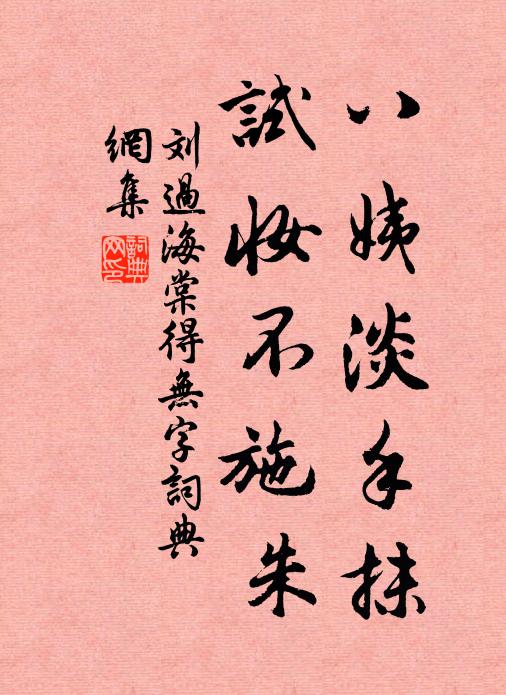 八姨淡手抹
試妝不施朱
刘過海棠得無字詞典
網集
詞典网印